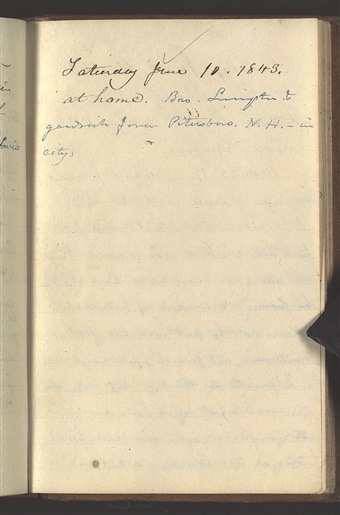 Saturday June 10. 1843.
at home. Bro. Livingston &
goodrich from Petersboro. N. H. - in
city,